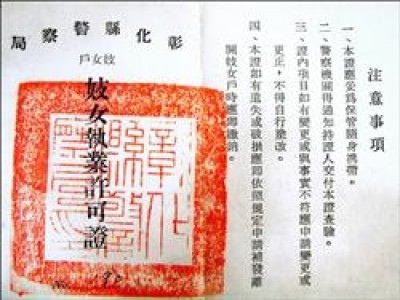 注意事項
一、本證應妥為保管隨身携帶。
二、警察機關得通知持證人交付本證查驗。
三、證內項目如有變更或與事實不符應申請變更或
更正，不得自行塗改。
四、本證如有遺失或破損應即依照規定申請補發離
開妓女戶時應即繳銷。
彰化縣警察局
妓女戶
妓女執業許可證